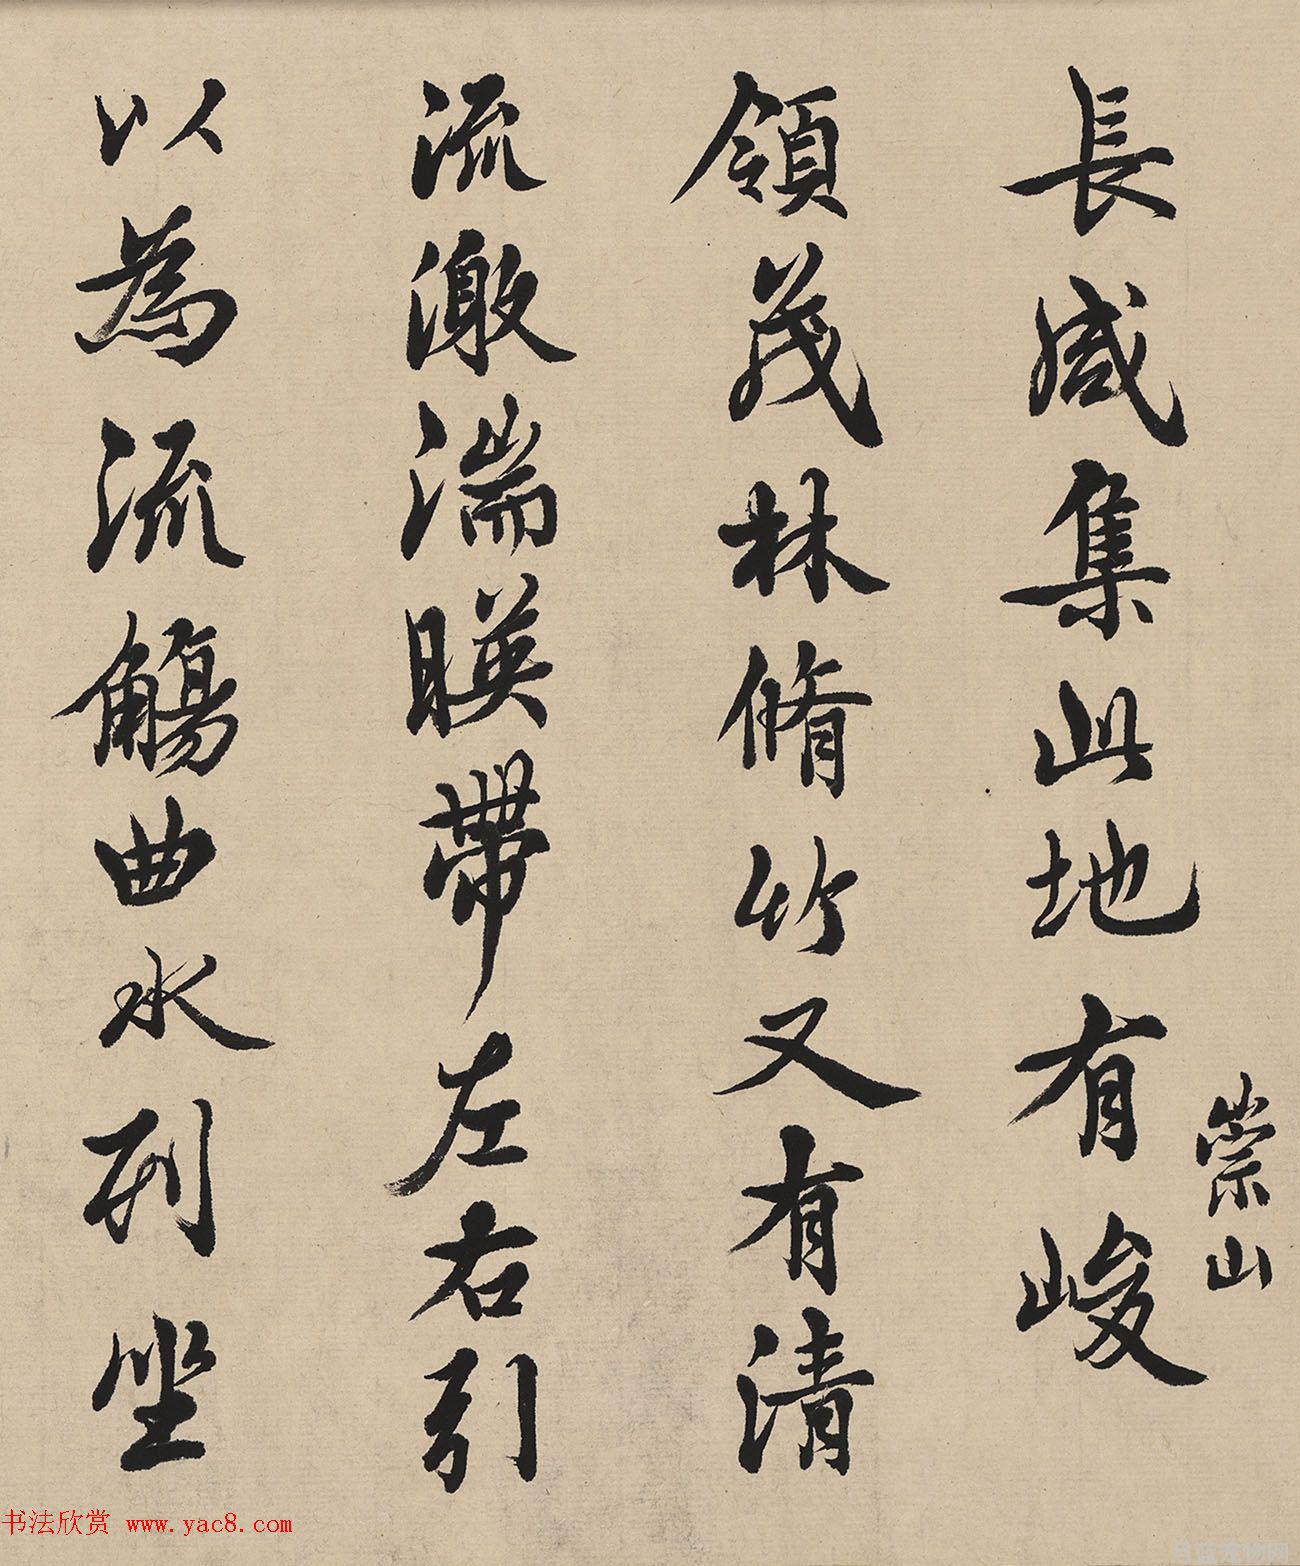 長咸集此地有峻
崇山
領茂林脩竹又有清
流激湍暎帶左右引
以為流觴曲水列坐
书法欣赏 www.yac8.com